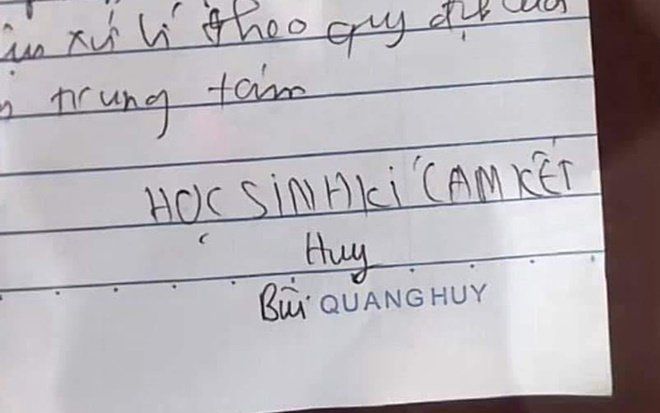 xử lí theo quy định của
trung tâm
HỌC SINH KÍ CAM KẾT
Huy
Bùi QUANG HUY